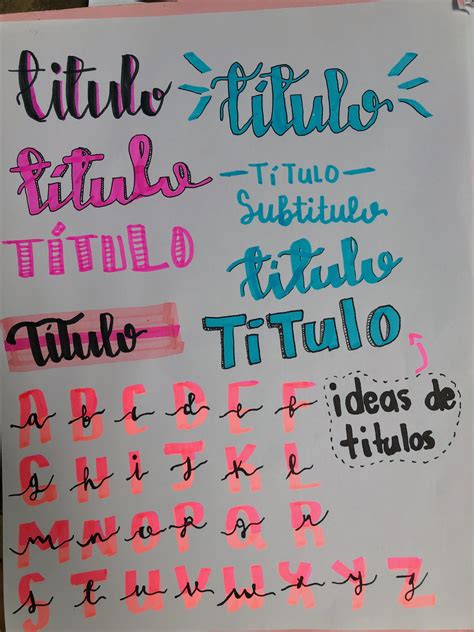 titulo
título
título
—TÍTULO—
TÍTULO
Subtitulo
título
Título
TíTULO
ideas de
titulos
A B C D E F
a b c d e f
G H I J K L
g h i j k l
M N O P Q R
m n o p q r
S T U V W X Y Z
s t u v w x y z